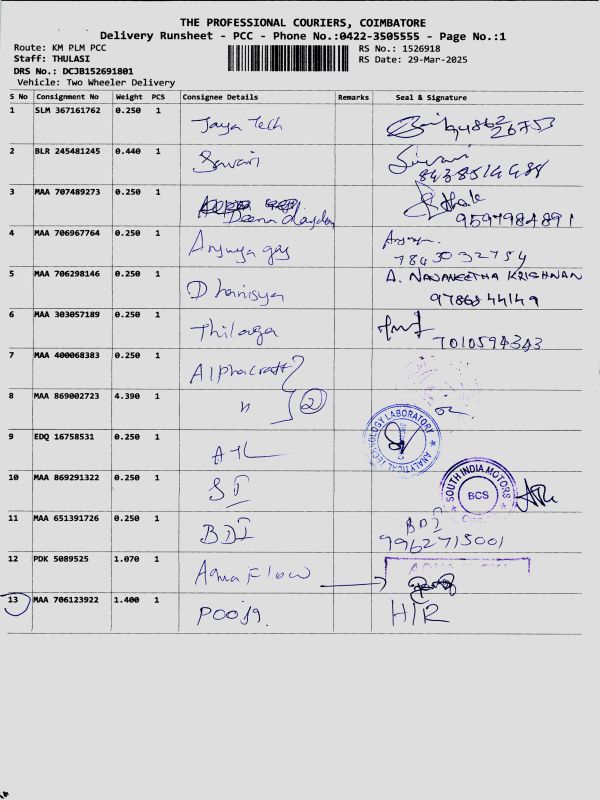 THE PROFESSIONAL COURIERS, COIMBATORE
Delivery Runsheet - PCC - Phone No.:0422-3505555 - Page No.:1
Route: KM PLM PCC
RS No.: 1526918
Staff: THULASI
RS Date: 29-Mar-2025
DRS No.: DCJB152691801
Vehicle: Two Wheeler Delivery
S No Consignment No Weight PCS Consignee Details Remarks Seal & Signature
1 SLM 367161762 0.250 1 Jaya Tech
2 BLR 245481245 0.440 1
3 MAA 707489273 0.250 1 9597984891
4 MAA 706967764 0.250 1 7843032754
5 MAA 706298146 0.250 1 Dhanisya A. NAVANEETHA KRISHNAN
6 MAA 303057189 0.250 1 Thilaga 7010594343
7 MAA 400068383 0.250 1 Alphacraft
8 MAA 869002723 4.390 1 " 2
ANALYTICAL TECHNOLOGY LABORATORY
9 EDQ 16758531 0.250 1 ATL
10 MAA 869291322 0.250 1 SI
SOUTH INDIA MOTORS
BCS
11 MAA 651391726 0.250 1 BDI BDI
9962715001
12 PDK 5089525 1.070 1 Aqua Flow
13 MAA 706123922 1.400 1 Pooja H/R